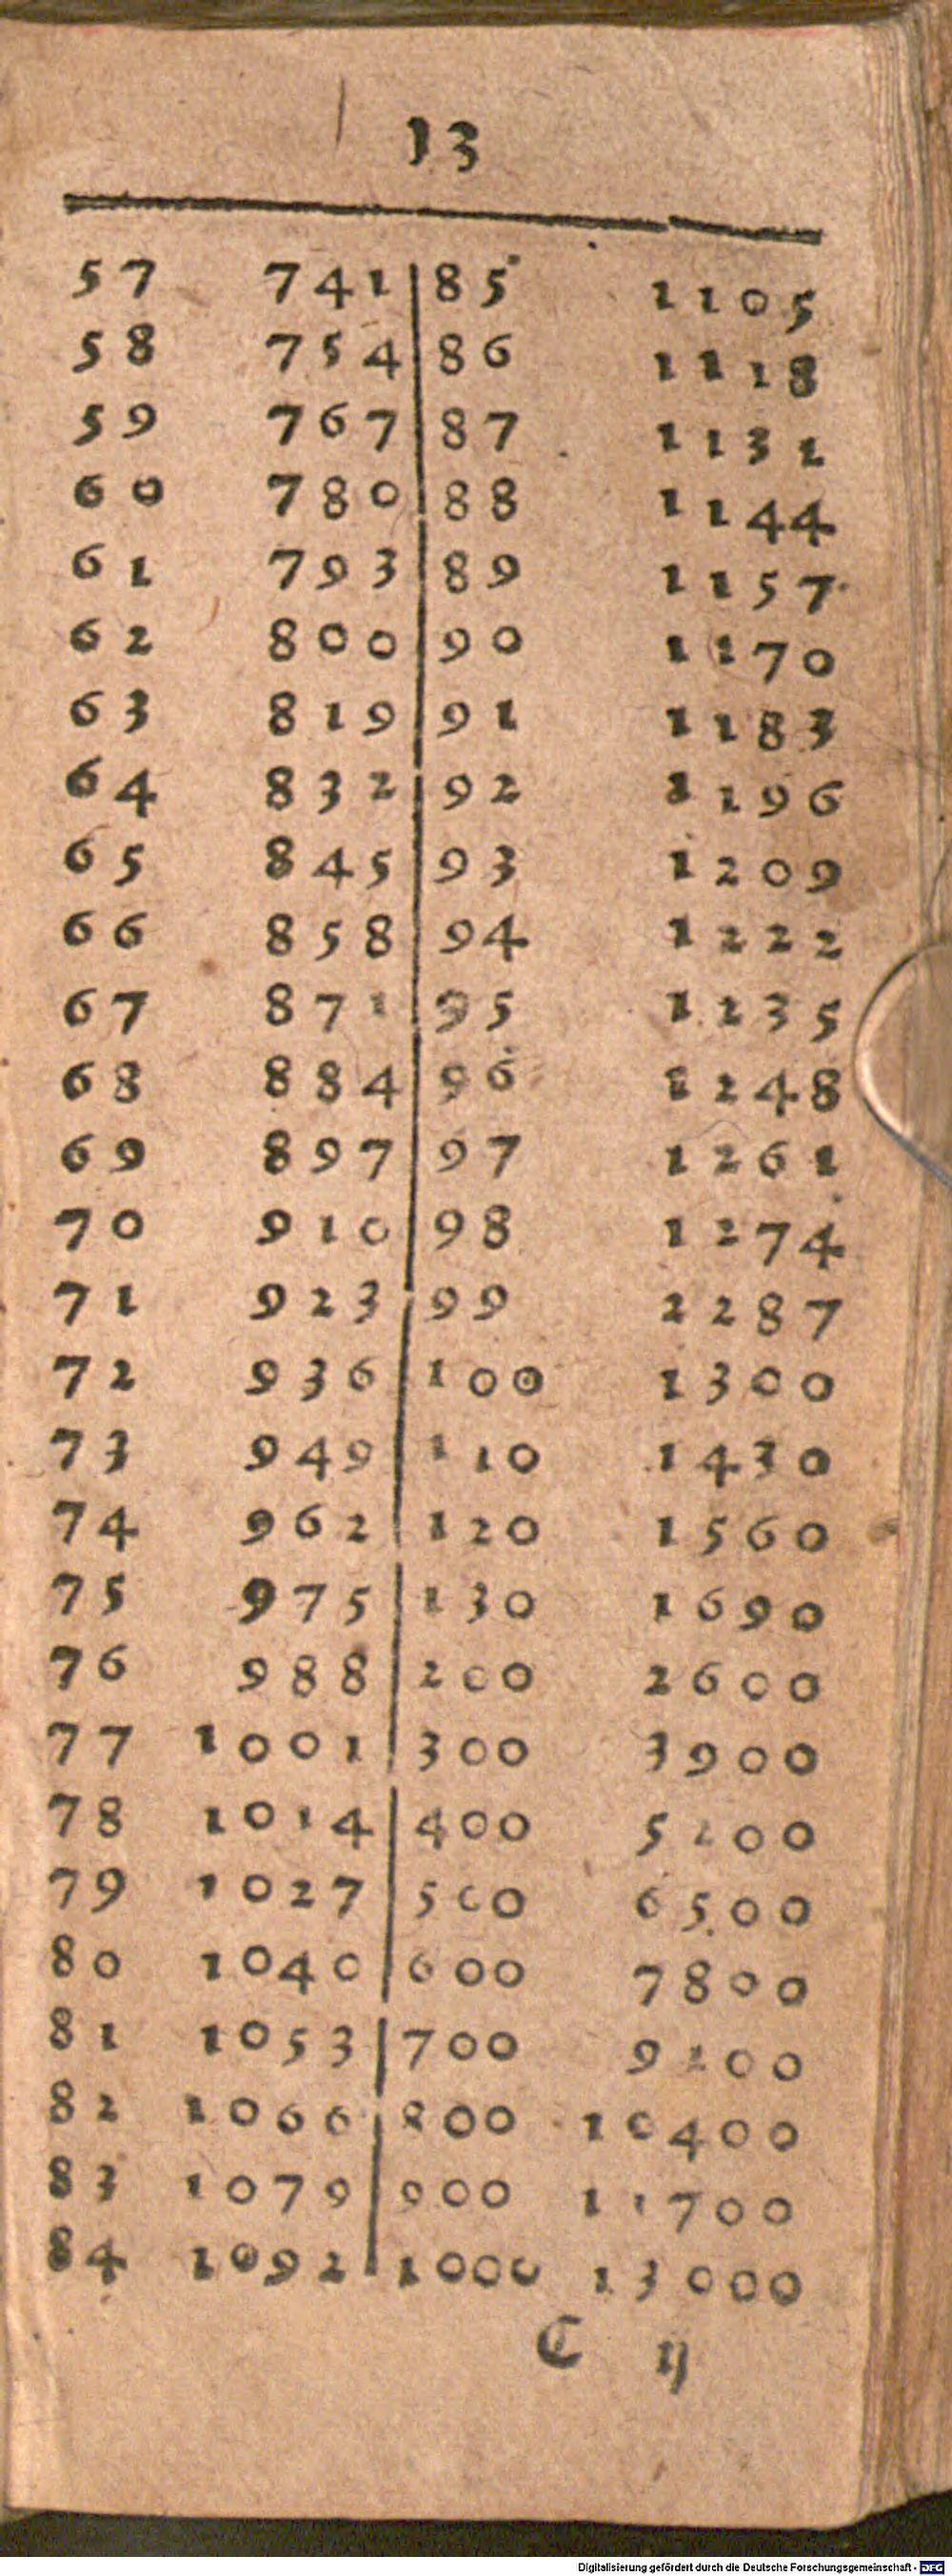 13
57 741 85 1105
58 754 86 1118
59 767 87 1132
60 780 88 1144
61 793 89 1157
62 800 90 1170
63 819 91 1183
64 832 92 1196
65 845 93 1209
66 858 94 1222
67 871 95 1235
68 884 96 1248
69 897 97 1261
70 910 98 1274
71 923 99 2287
72 936 100 1300
73 949 110 1430
74 962 120 1560
75 975 130 1690
76 988 200 2600
77 1001 300 3900
78 1014 400 5200
79 1027 500 6500
80 1040 600 7800
81 1053 700 9200
82 1066 800 10400
83 1079 900 11700
84 1092 1000 13000
C ij
Digitalisierung gefördert durch die Deutsche Forschungsgemeinschaft - DFG